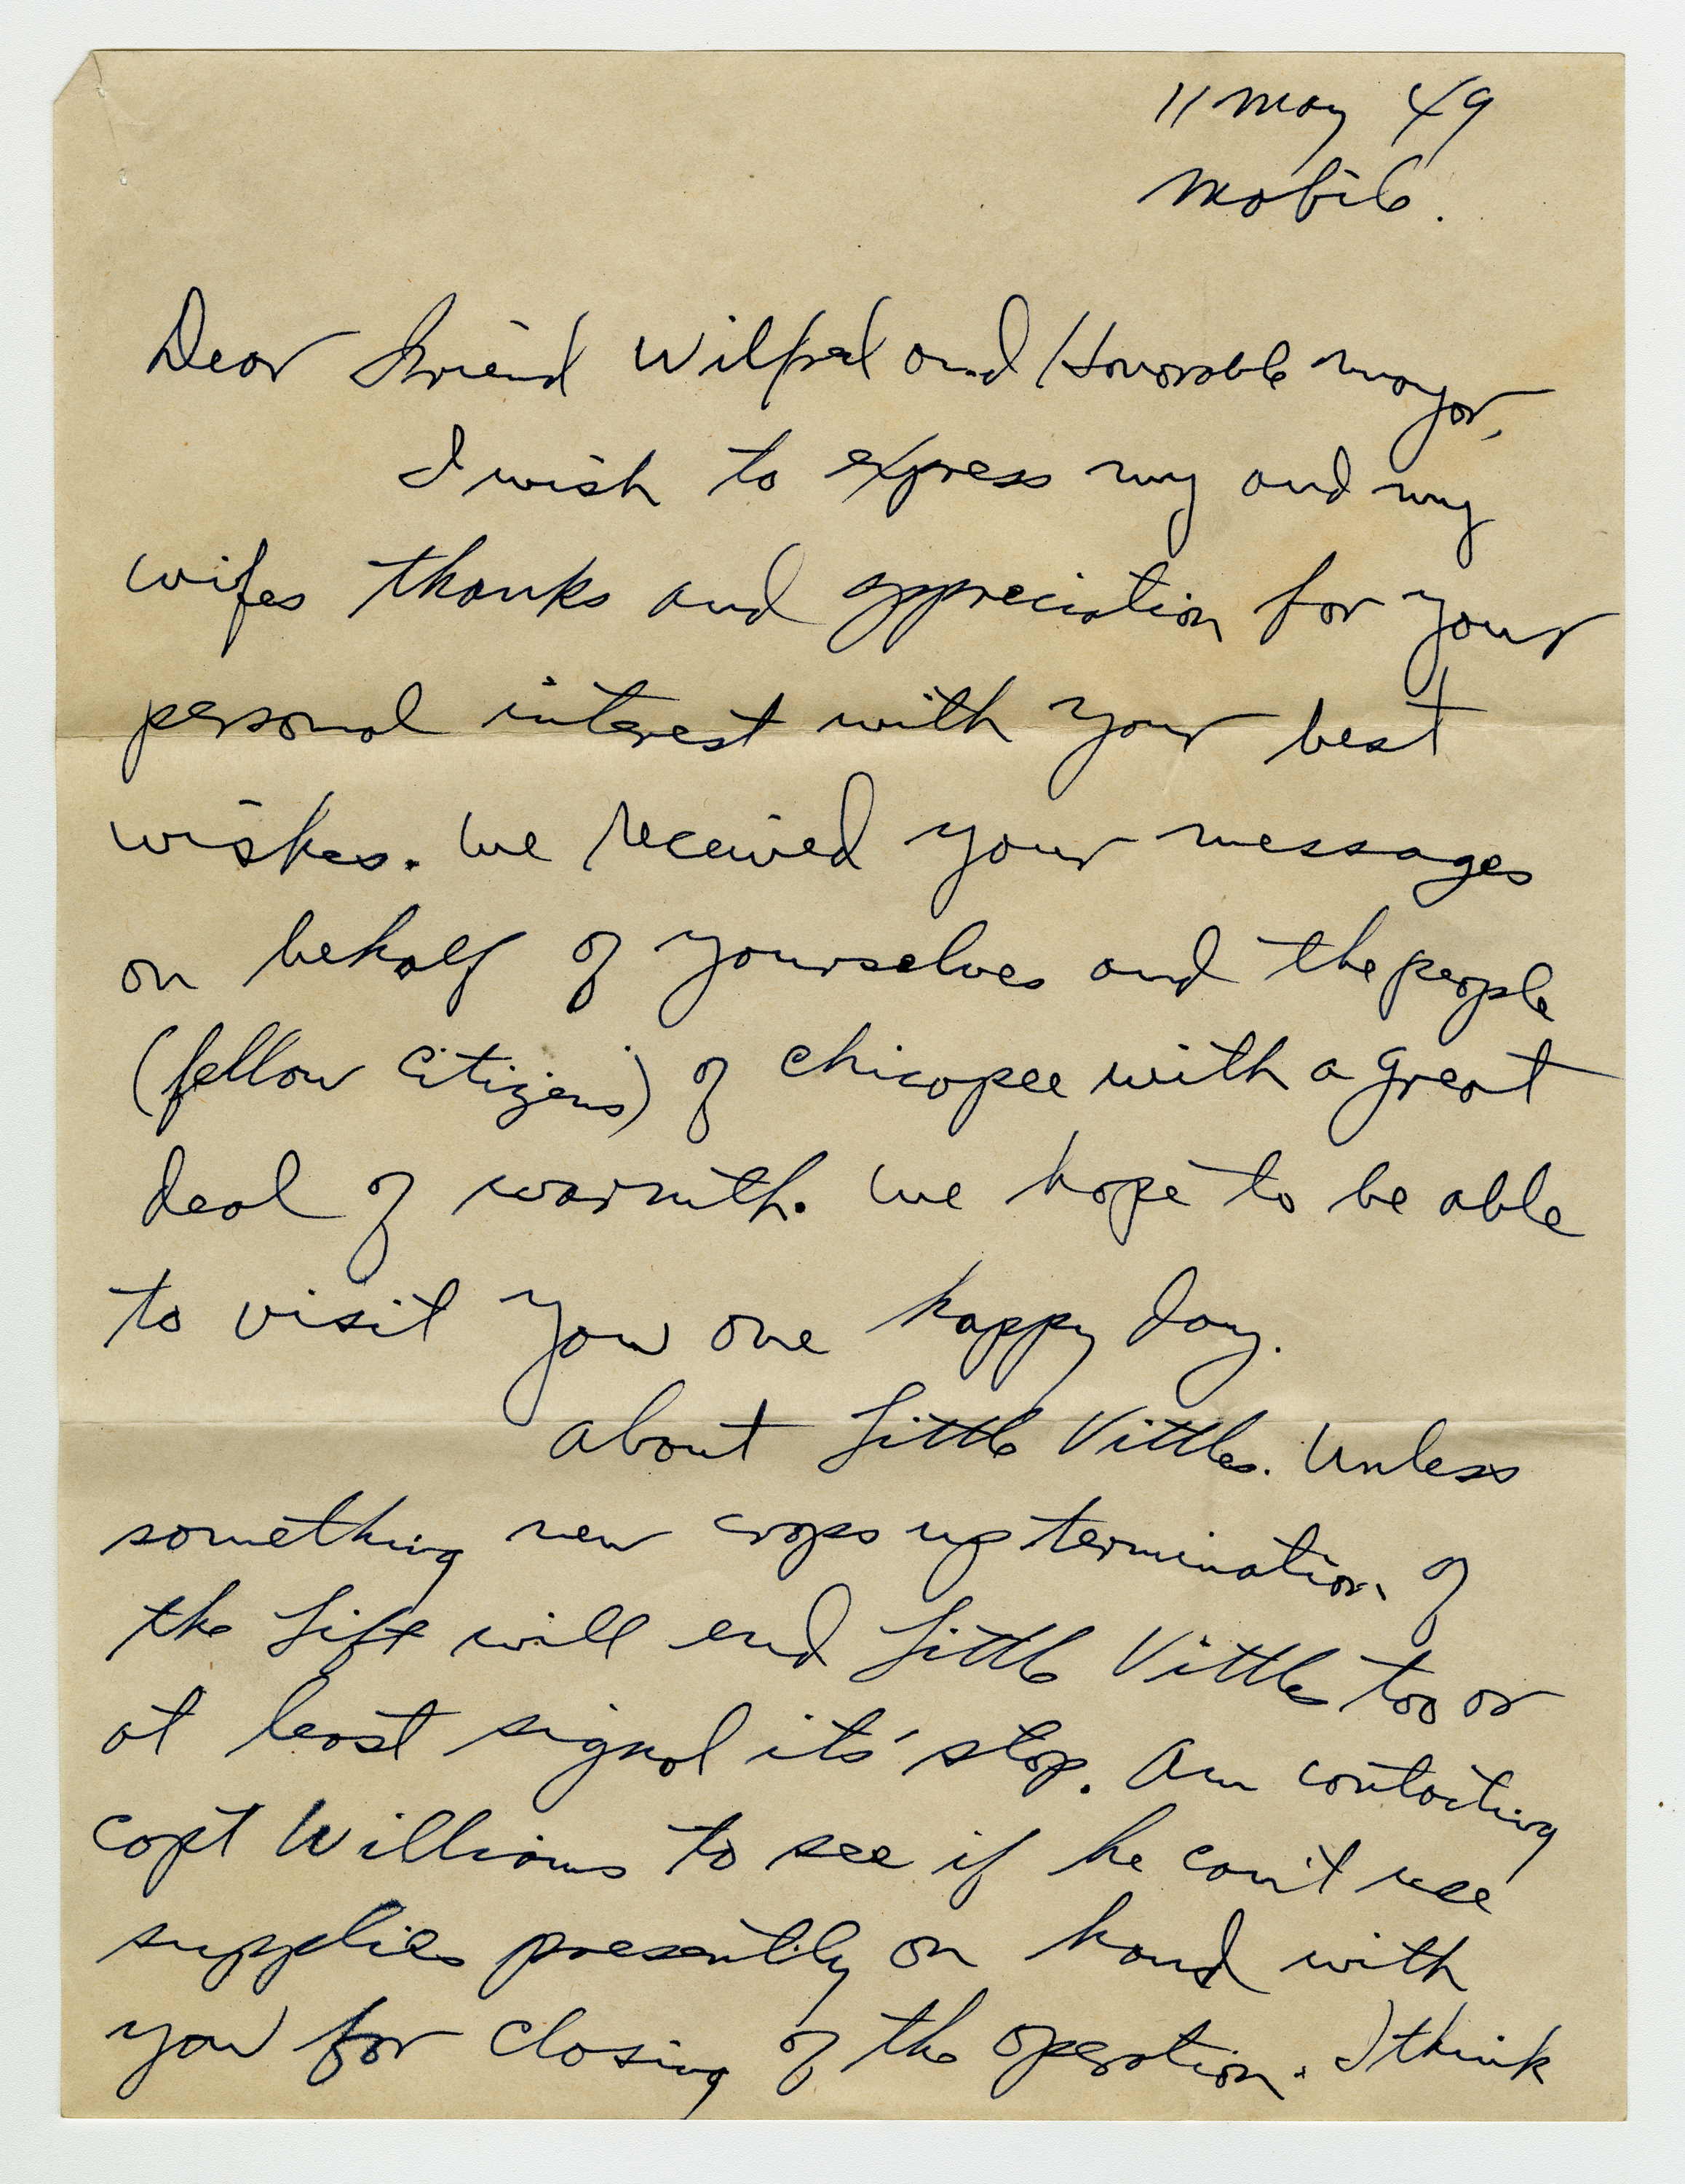 11 May 49
Mobile.
Dear Friend Wilfred and Honorable Mayor,
I wish to express my and my
wifes thanks and appreciation for your
personal interest with your best
wishes. We received your messages
on behalf of yourselves and the people
(fellow citizens) of Chicopee with a great
deal of warmth. We hope to be able
to visit you one happy day.
About Little Vittles. Unless
something new crops up termination of
the Lift will end Little Vittles too or
at least signal its' stop. Am contacting
Capt Williams to see if he can't use
supplies presently on hand with
you for closing of the operation. I think